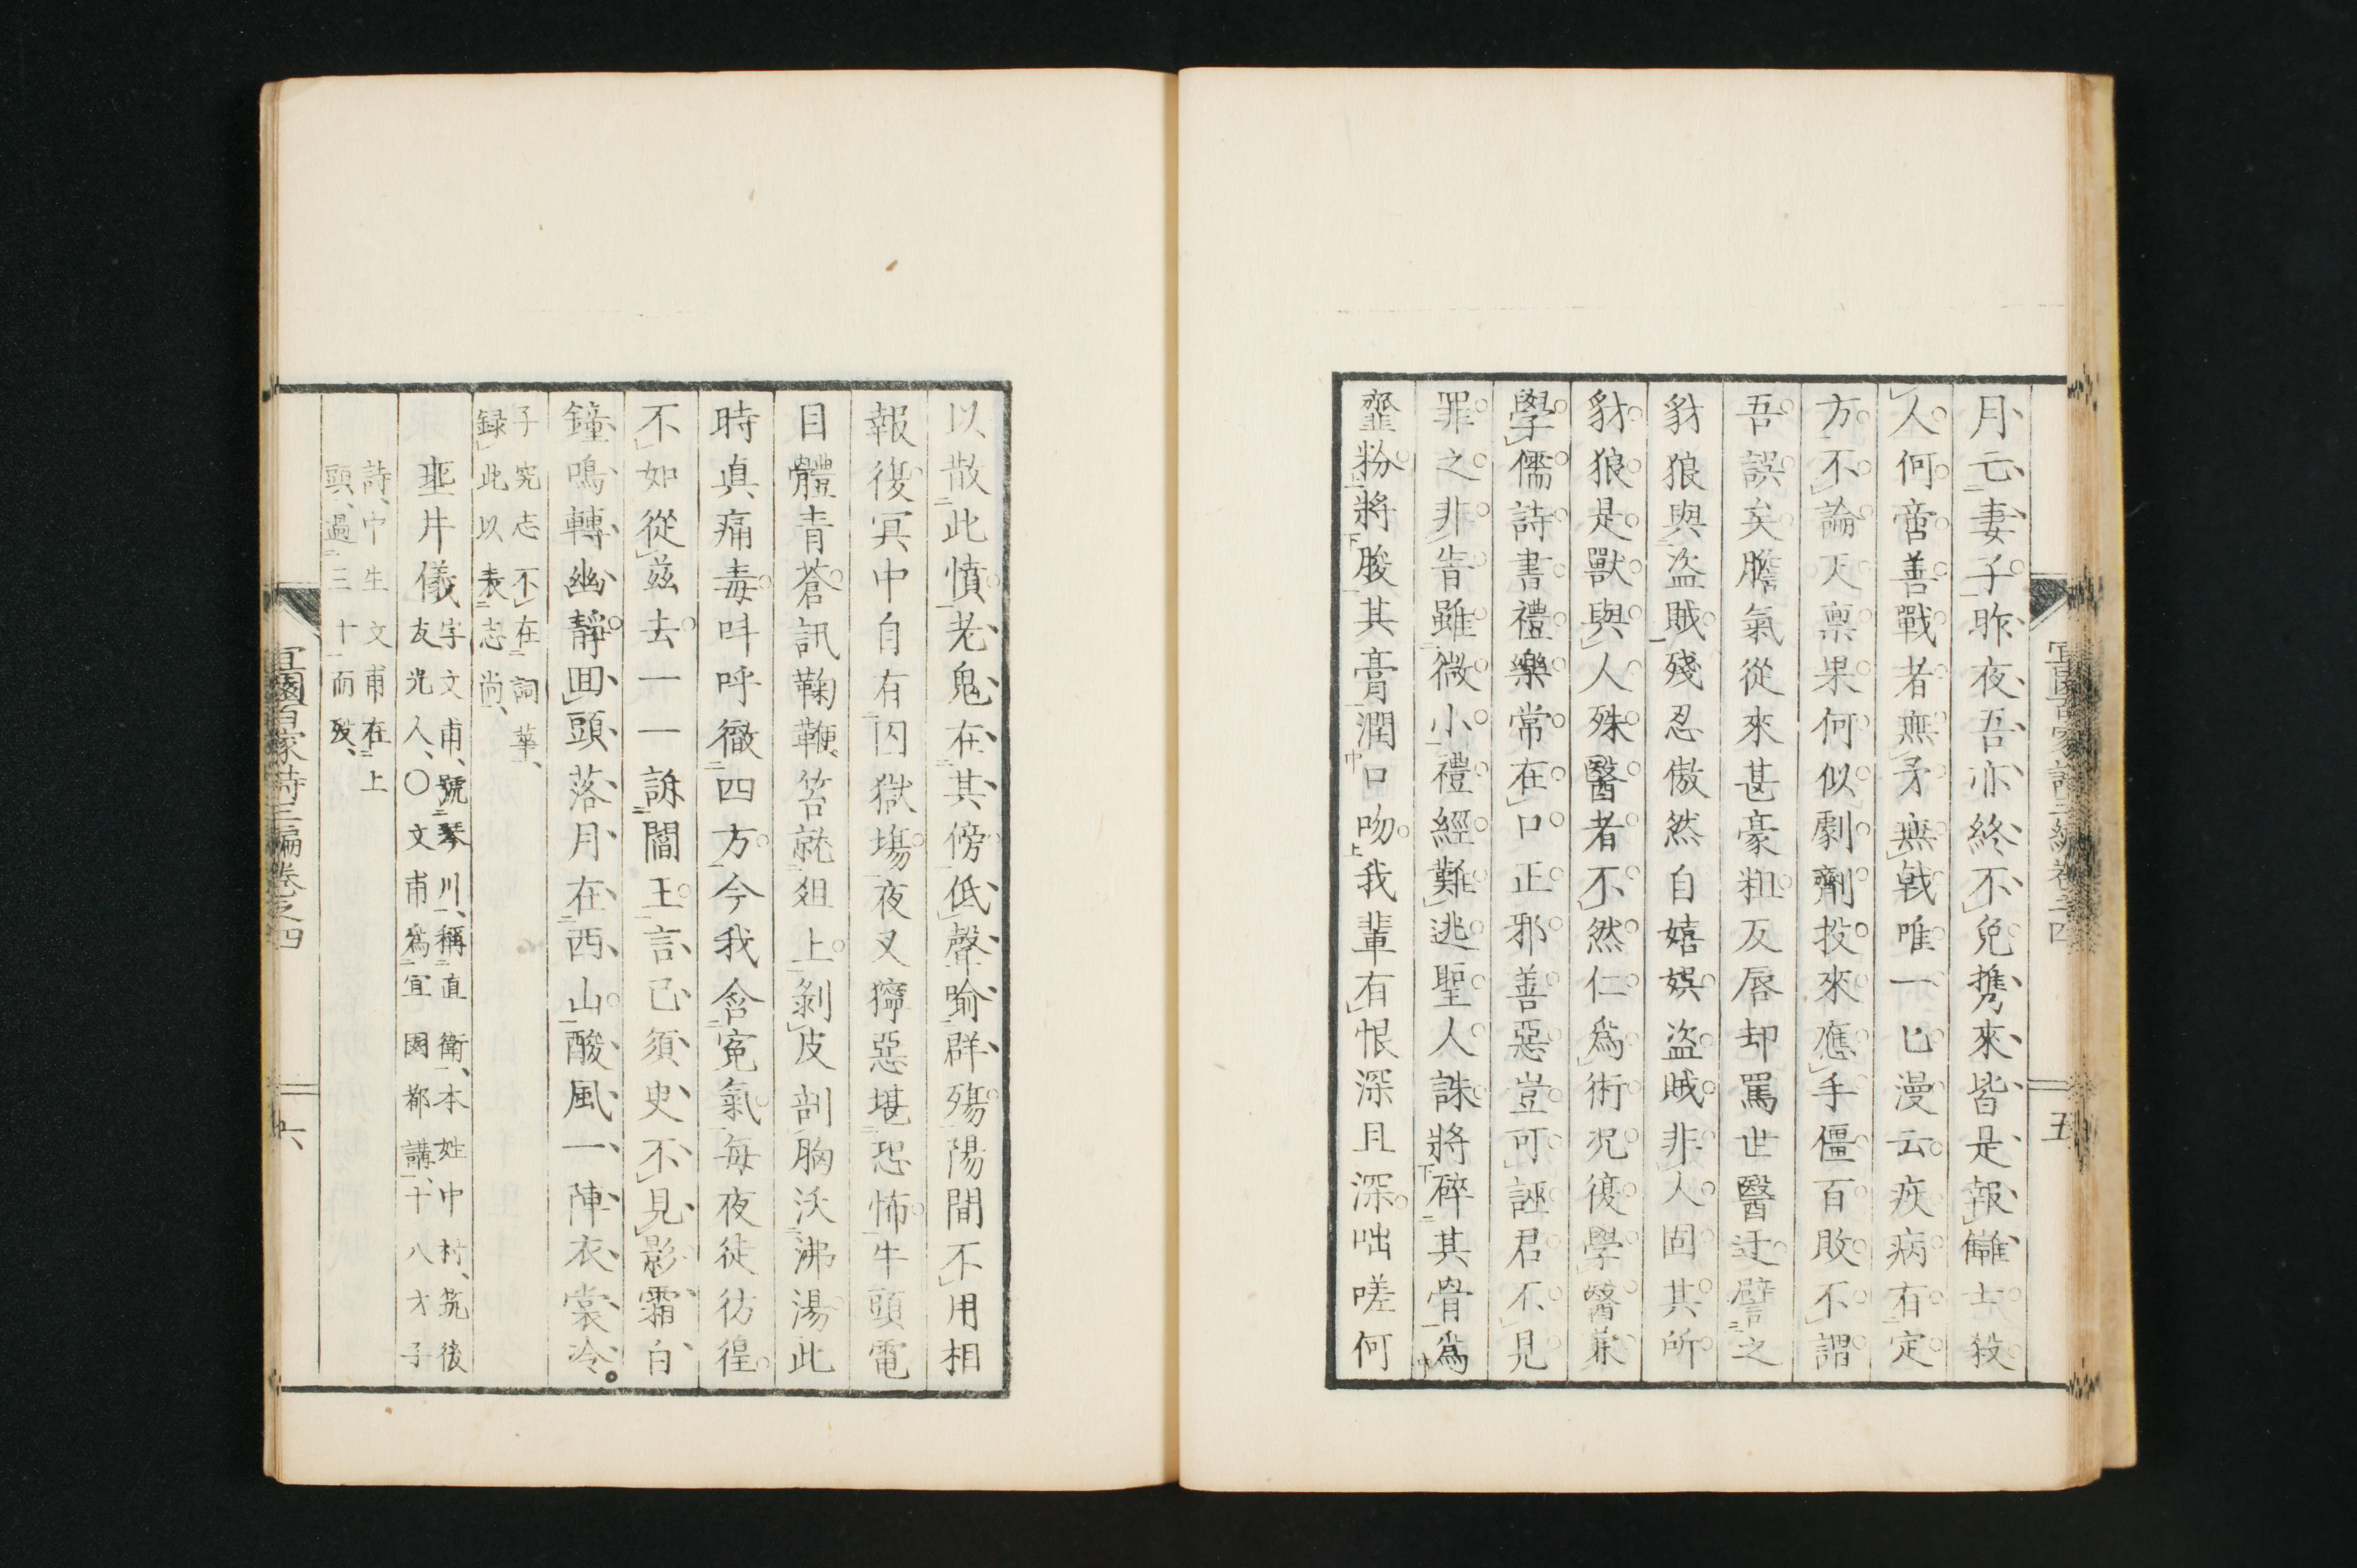 月亡妻子昨夜吾亦終不免携來皆是報讎士殺
人何啻善戰者無矛無戟唯一匕漫云疾病有定
方不論天稟果何似劇劑投來應手僵百敗不謂
吾誤矣膽氣從來甚豪粗反唇却罵世醫迂譬之
豺狼與盜賊殘忍傲然自嬉娯盜賊非人固其所
豺狼是獸與人殊醫者不然仁爲術況復學醫兼
學儒詩書禮樂常在口正邪善惡豈可誣君不見
罪之非眚雖微小禮經難逃聖人誅將碎其骨爲
齏粉將朘其膏潤口吻我輩有恨深且深咄嗟何
宜園百家詩三編卷之四
五
以散此憤老鬼在其傍低聲喻群殤陽間不用相
報復冥中自有囚獄塲夜叉獰惡堪恐怖牛頭電
目體青蒼訊鞠鞭笞就俎上剝皮剖胸沃沸湯此
時眞痛毒叫呼徹四方今我含寃氣每夜徒彷徨
不如從茲去一一訴閻王言已須臾不見影霜白
鐘鳴轉幽靜囬頭落月在西山酸風一陣衣裳冷
子究志不在詞華、
録此以表志尚、
埀井儀
字文甫、號琴川、稱直衛、本姓中村、筑後
友光人、〇文甫爲宜園都講、十八才子
詩、中生文甫在上
頭、過三十而歿、
宜園百家詩三編卷之四
六